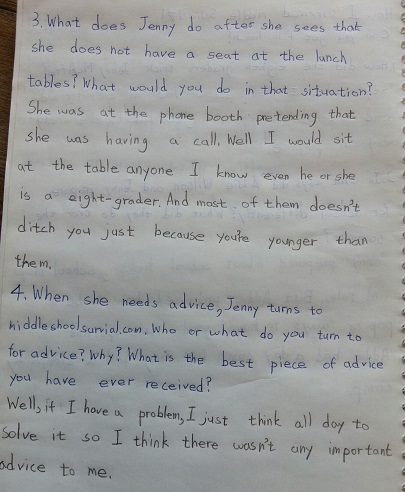 3. What does Jenny do after she sees that
she does not have a seat at the lunch
tables? What would you do in that situation?
She was at the phone booth pretending that
she was having a call. Well I would sit
at the table anyone I know even he or she
is a eight-grader. And most of them doesn't
ditch you just because you're younger than
them.
4. When she needs advice, Jenny turns to
middleshoolsurvial.com. Who or what do you turn to
for advice? Why? What is the best piece of advice
you have ever received?
Well, if I have a problem, I just think all day to
solve it so I think there wasn't any important
advice to me.